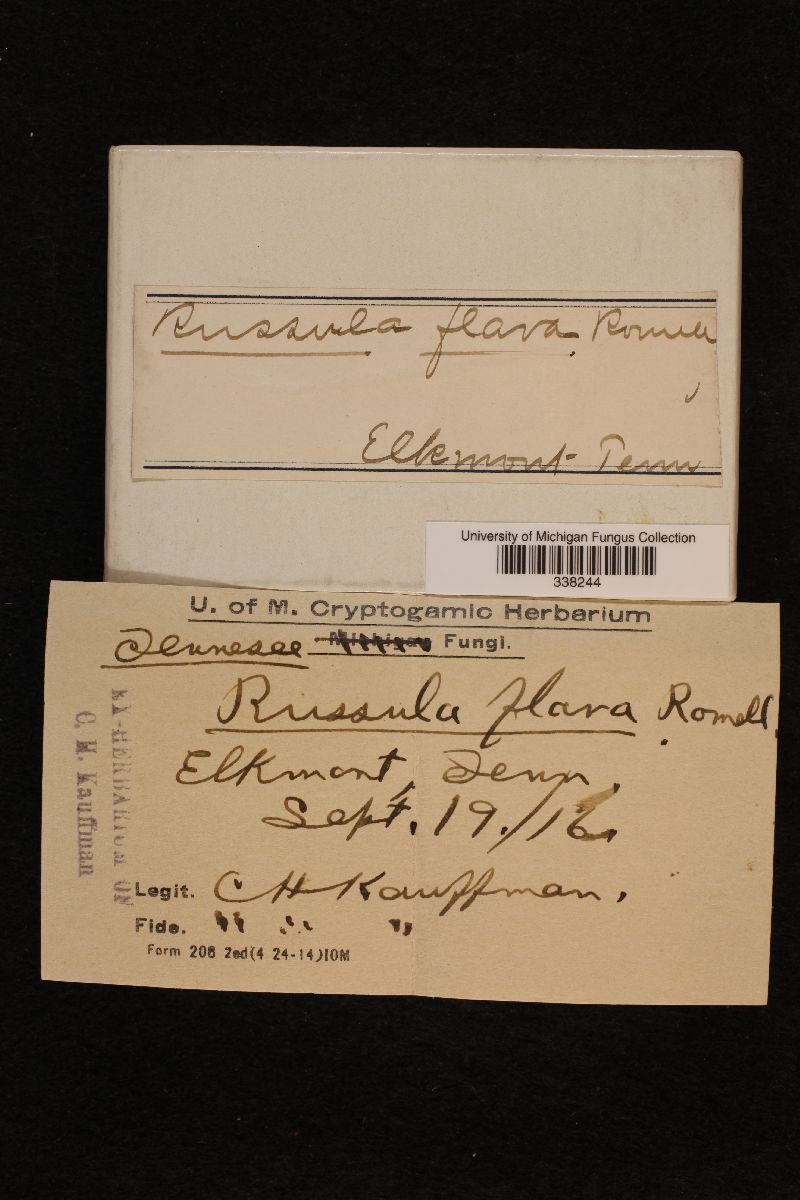 Russula flava Romell
Elkmont Tenn
University of Michigan Fungus Collection
338244
U. of M. Cryptogamic Herbarium
Tennesee Michigan Fungi.
Russula flava Romell.
Elkmont, Tenn.
Sept. 19./16.
Legit. CH Kauffman.
Fide. " " "
Form 208 2ed(4 24-14)10M
EX-HERBARIUM ON
C. H. Kauffman